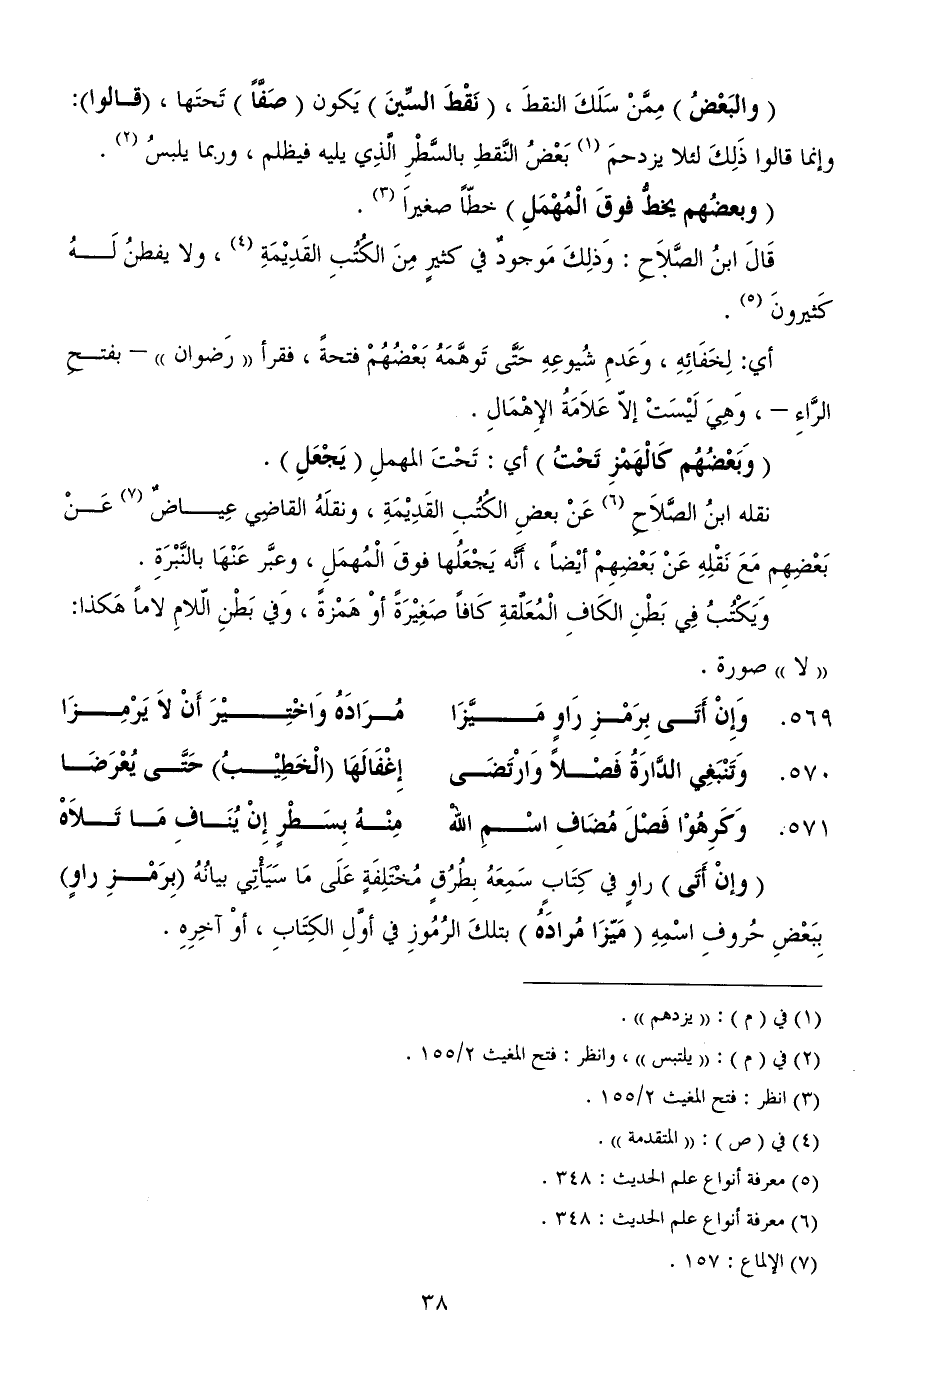 ( والبَعْضُ ) مِمَّنْ سَلَكَ النقطَ ، ( نَقْطَ السِّينَ ) يَكون ( صَفَّاً ) تَحتَها ، (قـالوا):
وإنما قالوا ذَلِكَ لئلا يزدحمَ (١) بَعْضُ النَّقطِ بالسَّطْرِ الَّذِي يليه فيظلم ، وربما يلبسُ (٢) .
( وبعضُهم يخطُّ فوقَ الْمُهْمَلِ ) خطّاً صغيراً (٣) .
قَالَ ابنُ الصَّلاَحِ : وَذلِكَ مَوجودٌ في كثيرٍ مِنَ الكُتُبِ القَدِيْمَةِ (٤) ، ولا يفطنُ لَـــهُ
كَثيرونَ (٥) .
أي: لِخَفَائِهِ ، وَعَدمِ شُيوعِهِ حَتَّى تَوهَّمَهُ بَعْضُهُمْ فتحةً ، فقرأ « رَضوان » – بفتــحِ
الرَّاءِ – ، وَهِيَ لَيْسَتْ إلاّ عَلاَمَةُ الإهْمَالِ .
( وَبَعْضُهُم كَالْهَمْزِ تَحْتُ ) أي : تَحْتَ المهملِ ( يَجْعَلِ ) .
نقله ابنُ الصَّلاَحِ (٦) عَنْ بعضِ الكُتُبِ القَدِيْمَةِ ، ونقلَهُ القاضِي عِيـــاضٌ (٧) عَـــنْ
بَعْضِهِم مَعَ نَقْلِهِ عَنْ بَعْضِهِمْ أيْضاً ، أنَّه يَجْعَلُها فوقَ الْمُهمَلِ ، وعبَّر عَنْهَا بالنَّبْرَةِ .
وَيَكْتُبُ فِي بَطْنِ الكَافِ الْمُعَلَّقةِ كَافاً صَغِيْرَةً أوْ هَمْزةً ، وَفي بَطْنِ الّلامِ لاماً هَكذا:
« لا » صورة .
٥٦٩. وَإنْ أَتَــى بِرَمْـزِ رَاوٍ مَـــيَّزَا مُـرَادَهُ وَاخْتِـــيْرَ أَنْ لاَ يَرْمِـــزَا
٥٧٠. وَتَنْبَغِي الدَّارَةُ فَصْـــلاً وَارْتَضَـــى إغْفَالَهَا (الْخَطِيْـــبُ) حَتَّـــى يُعْرَضَـــا
٥٧١. وَكَرِهُوْا فَصْلَ مُضَافِ اسْـــمِ اللهْ مِنْـــهُ بِسَـــطْرٍ إنْ يُنَـــافِ مَـــا تَـــلاَهْ
( وإنْ أَتَى ) راوٍ في كِتَابٍ سَمِعَهُ بِطُرُقٍ مُخْتَلِفَةٍ عَلَى مَا سَيَأْتِي بيانُهُ (بِرَمْـــزِ راوٍ)
بِبَعْضِ حُروفِ اسْمِهِ ( مَيّزَا مُرادَهُ ) بتلكَ الرُمُوزِ في أوَّلِ الكِتَابِ ، أوْ آخِرِهِ .
(١) في ( م ) : « يزدهم » .
(٢) في ( م ) : « يلتبس » ، وانظر : فتح المغيث ١٥٥/٢ .
(٣) انظر : فتح المغيث ١٥٥/٢ .
(٤) في ( ص ) : « المتقدمة » .
(٥) معرفة أنواع علم الحديث : ٣٤٨ .
(٦) معرفة أنواع علم الحديث : ٣٤٨ .
(٧) الإلماع : ١٥٧ .
٣٨